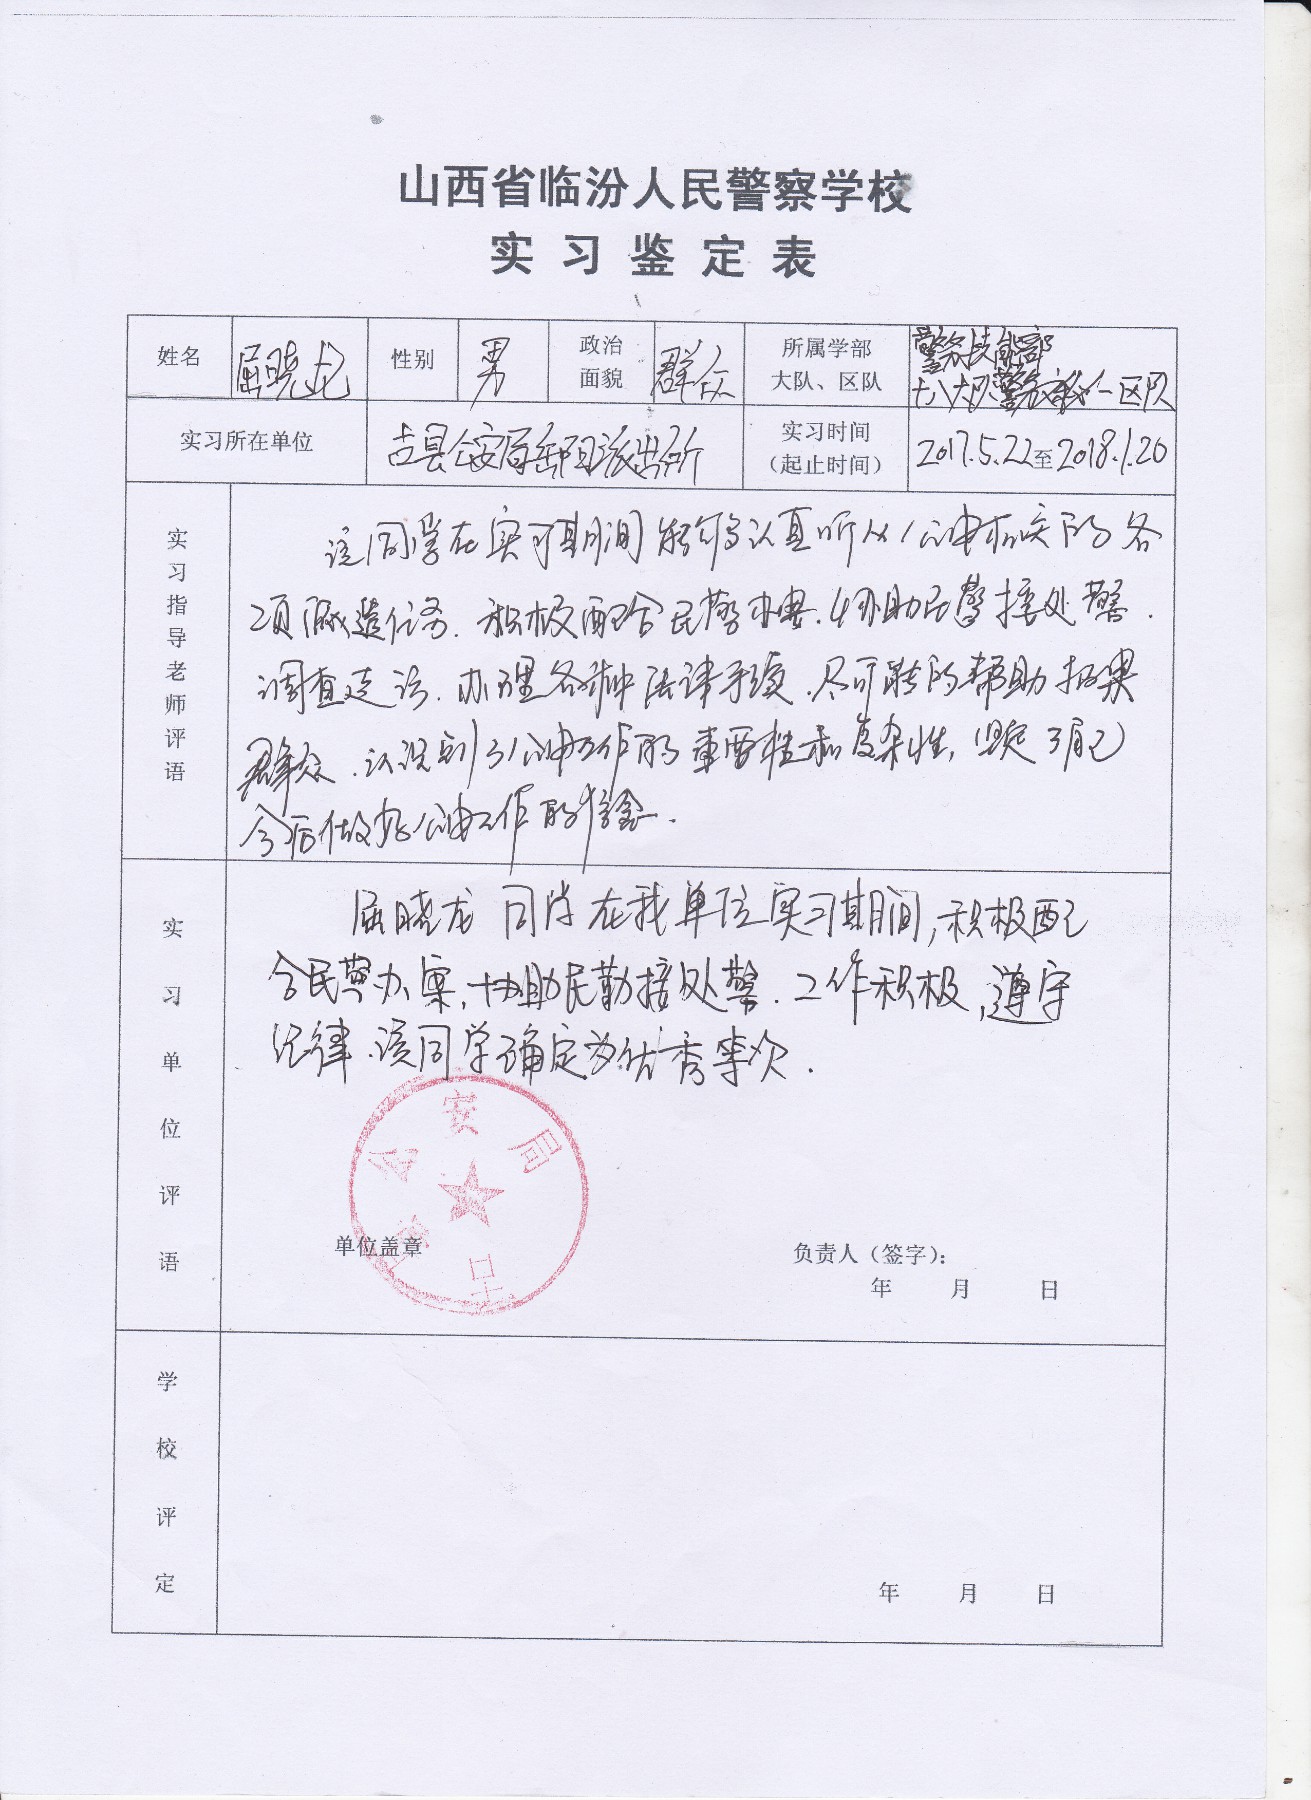 山西省临汾人民警察学校
实习鉴定表
姓名 屈晓龙 性别 男 政治面貌 群众 所属学部大队、区队 警务技能部
十八大队警务 一区队
实习所在单位 古县公安局岳阳派出所 实习时间(起止时间) 2017.5.22至2018.1.20
实习指导老师评语
该同学在实习期间能够认真听从公安机关的各
项 任务.积极配合民警办案.协助民警接处警.
调查走访.办理各种法律手续.尽可能的帮助报案
群众.认识到了公安工作的重要性和复杂性,坚定了自己
今后做好公安工作的信念.
实习单位评语
屈晓龙同学在我单位实习期间,积极配
合民警办案,协助民警接处警.工作积极,遵守
纪律.该同学确定为优秀等次.
古县公安局
单位盖章 负责人(签字):
年 月 日
学校评定
年 月 日